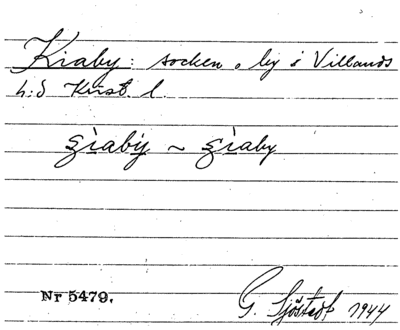 Kiaby: socken o. by i Villands
h:d Krist. l.
ʂìabẏ ~ ʂìaby
Nr 5479.
G. Sjöstedt 1944